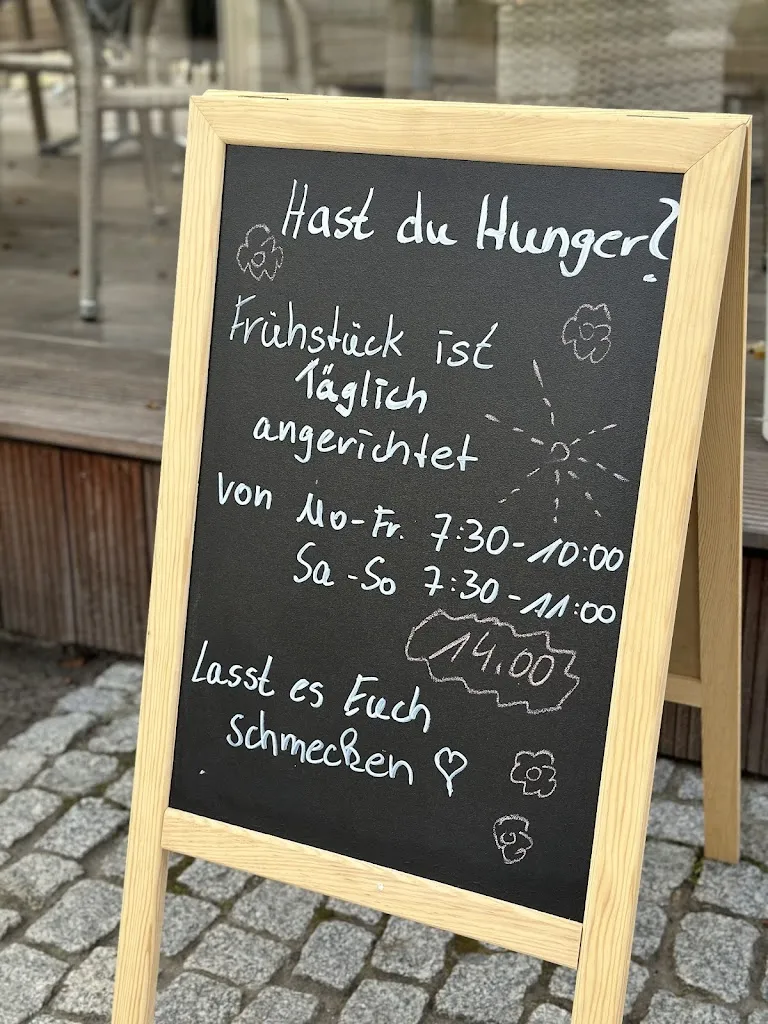 Hast du Hunger?
Frühstück ist
Täglich
angerichtet
von Mo-Fr. 7:30-10:00
Sa-So 7:30-11:00
14.00
Lasst es Euch
schmecken ♡